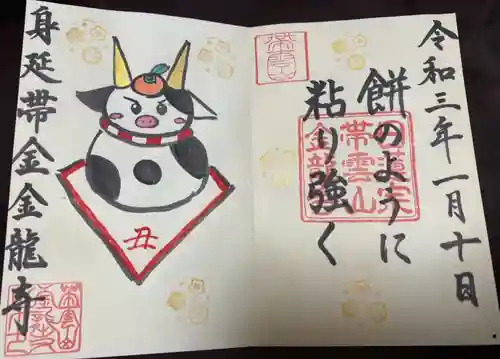 令和三年一月十日
餅のように
粘り強く
日蓮宗
帯雲山
金龍寺
丑
身延帯金金龍寺